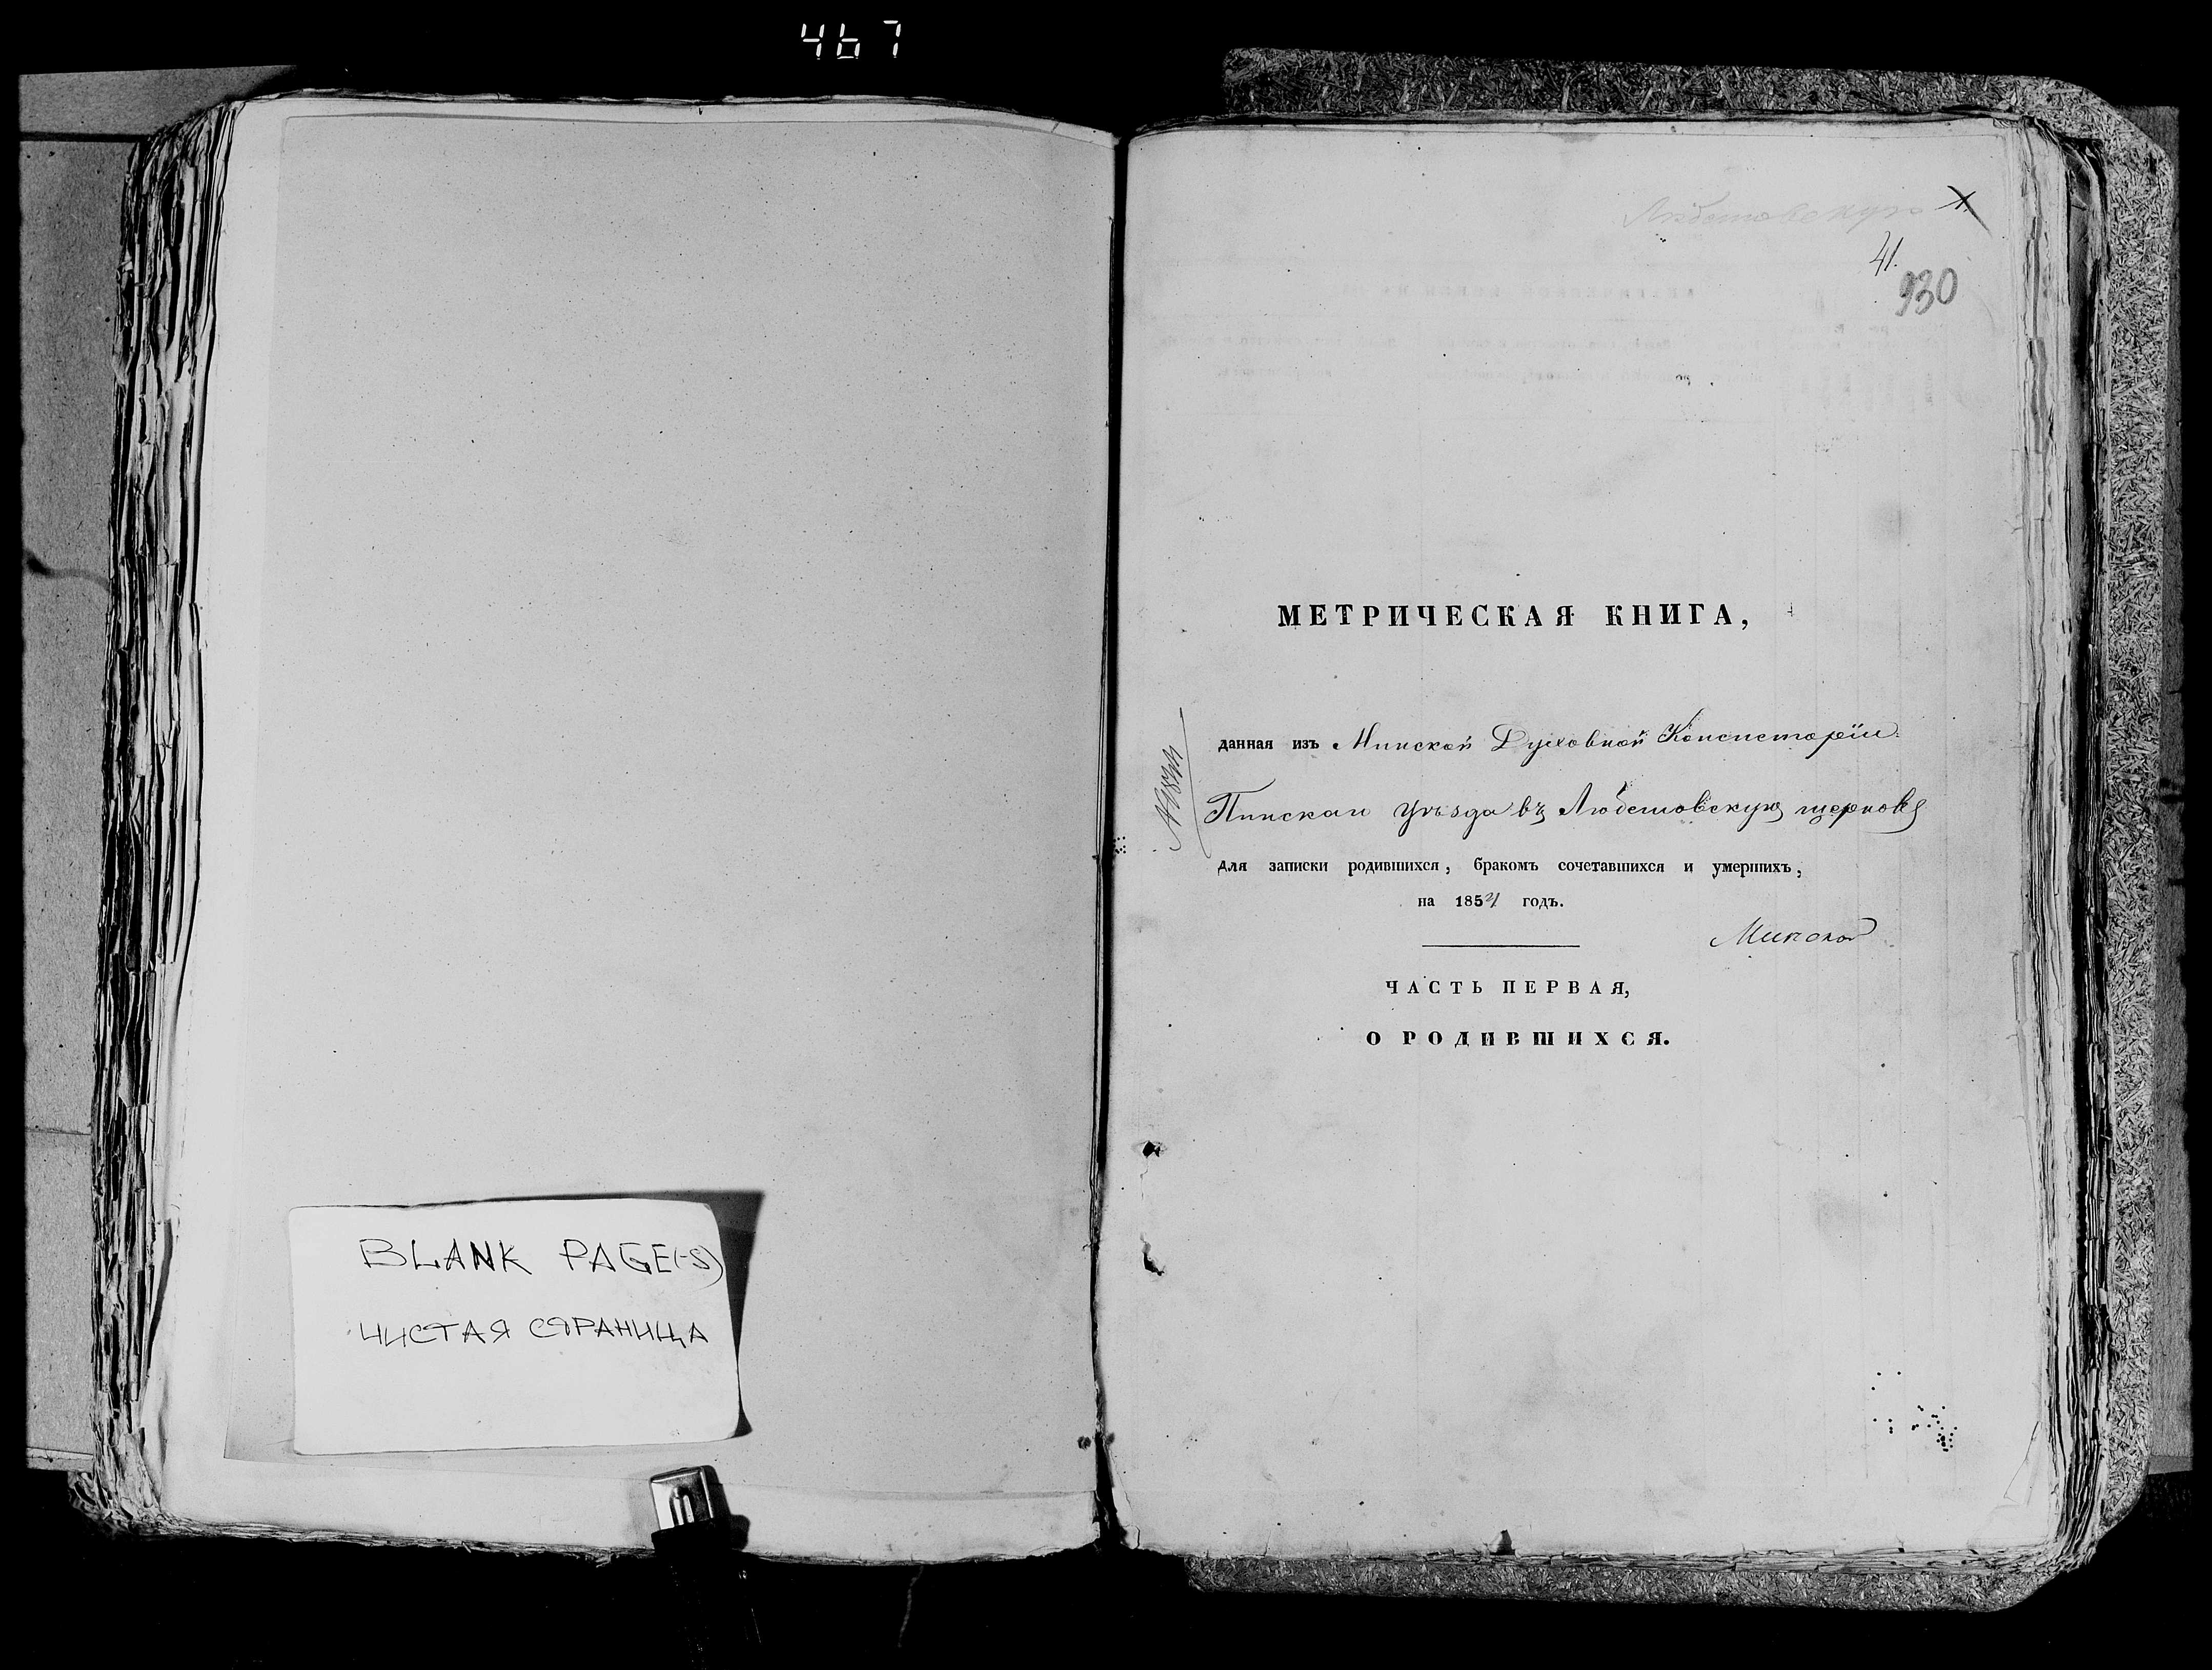 467
BLANK PAGE(-S)
ЧИСТАЯ СТРАНИЦА
Любешовскую
41.
930
МЕТРИЧЕСКАЯ КНИГА,
данная изъ Минской Духовной Консисторіи
Пинскаго уѣзда въ Любешовскую церковь
для записки родившихся, бракомъ сочетавшихся и умершихъ,
на 1854 годъ.
Минской
ЧАСТЬ ПЕРВАЯ,
О РОДИВШИХСЯ.